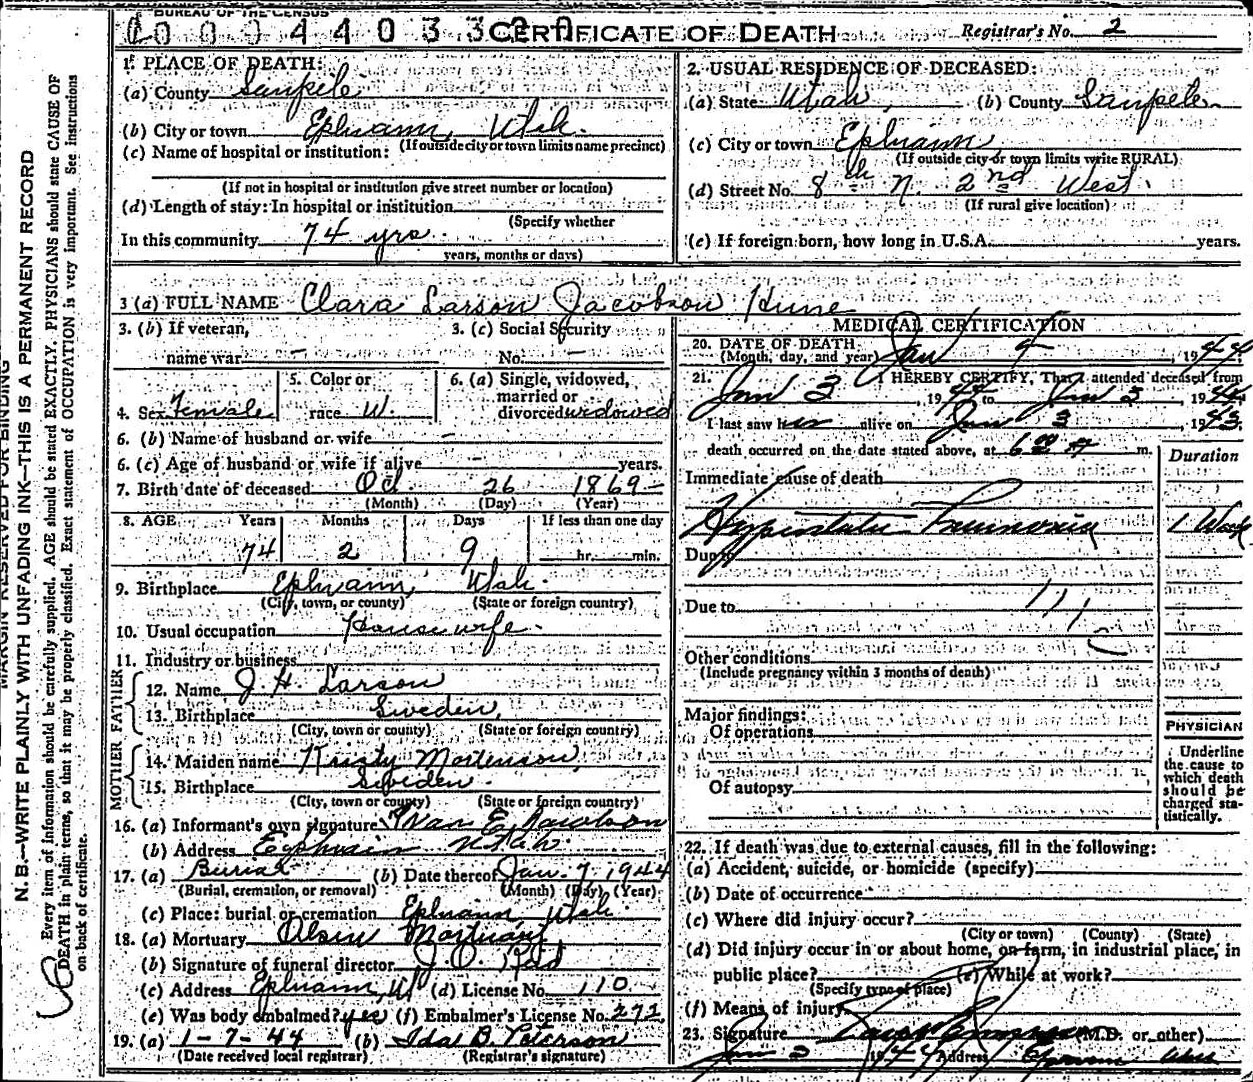 BUREAU OF THE CENSUS
CERTIFICATE OF DEATH Registrar's No. 2
MARGIN RESERVED FOR BINDING
N. B.—WRITE PLAINLY WITH UNFADING INK—THIS IS A PERMANENT RECORD
Every item of information should be carefully supplied. AGE should be stated EXACTLY. PHYSICIANS should state CAUSE OF
DEATH in plain terms, so that it may be properly classified. Exact statement of OCCUPATION is very important. See instructions
on back of certificate.
1. PLACE OF DEATH:
(a) County Sanpete
(b) City or town Ephraim, Utah.
(If outside city or town limits name precinct)
(c) Name of hospital or institution:
(If not in hospital or institution give street number or location)
(d) Length of stay: In hospital or institution
(Specify whether
In this community 74 yrs.
years, months or days)
2. USUAL RESIDENCE OF DECEASED:
(a) State Utah, (b) County Sanpete
(c) City or town Ephraim
(If outside city or town limits write RURAL)
(d) Street No. 8th N. 2nd West
(If rural give location)
(e) If foreign born, how long in U.S.A. years.
3 (a) FULL NAME Clara Larson Jacobson Hune
3. (b) If veteran, name war –
3. (c) Social Security No. –
4. Sex Female
5. Color or race W.
6. (a) Single, widowed, married or divorced widowed
6. (b) Name of husband or wife –
6. (c) Age of husband or wife if alive – years.
7. Birth date of deceased Oct. 26 1869
(Month) (Day) (Year)
8. AGE Years Months Days If less than one day
74 2 9 hr. min.
9. Birthplace Ephraim, Utah.
(City, town, or county) (State or foreign country)
10. Usual occupation Housewife.
11. Industry or business
FATHER
12. Name J. H. Larson
13. Birthplace Sweden,
(City, town or county) (State or foreign country)
MOTHER
14. Maiden name Kristy Mortenson,
15. Birthplace Sweden.
(City, town or county) (State or foreign country)
16. (a) Informant's own signature E. Jacobson
(b) Address Ephraim Utah.
17. (a) Burial (b) Date thereof Jan. 7 1944
(Burial, cremation, or removal) (Month) (Day) (Year)
(c) Place: burial or cremation Ephraim, Utah.
18. (a) Mortuary Olsen Mortuary
(b) Signature of funeral director J. O.
(c) Address Ephraim, U (d) License No. 110
(e) Was body embalmed? yes (f) Embalmer's License No. 272
19. (a) 1-7-44 (b) Ida B. Peterson
(Date received local registrar) (Registrar's signature)
MEDICAL CERTIFICATION
20. DATE OF DEATH
(Month, day, and year) Jan 4, 1944
21. I HEREBY CERTIFY, That I attended deceased from
Jan 3, 1944 to Jan 3, 1944
I last saw her alive on Jan 3, 1943.
death occurred on the date stated above, at 6 m.
Duration
Immediate cause of death
Hypostatic Pneumonia 1 Week
Due to
Due to
Other conditions
(Include pregnancy within 3 months of death)
Major findings:
Of operations
Of autopsy
PHYSICIAN
Underline
the cause to
which death
should be
charged sta-
tistically.
22. If death was due to external causes, fill in the following:
(a) Accident, suicide, or homicide (specify)
(b) Date of occurrence
(c) Where did injury occur?
(City or town) (County) (State)
(d) Did injury occur in or about home, on farm, in industrial place, in
public place? (e) While at work?
(Specify type of place)
(f) Means of injury
23. Signature (M.D. or other)
1944 Address Ephraim Utah